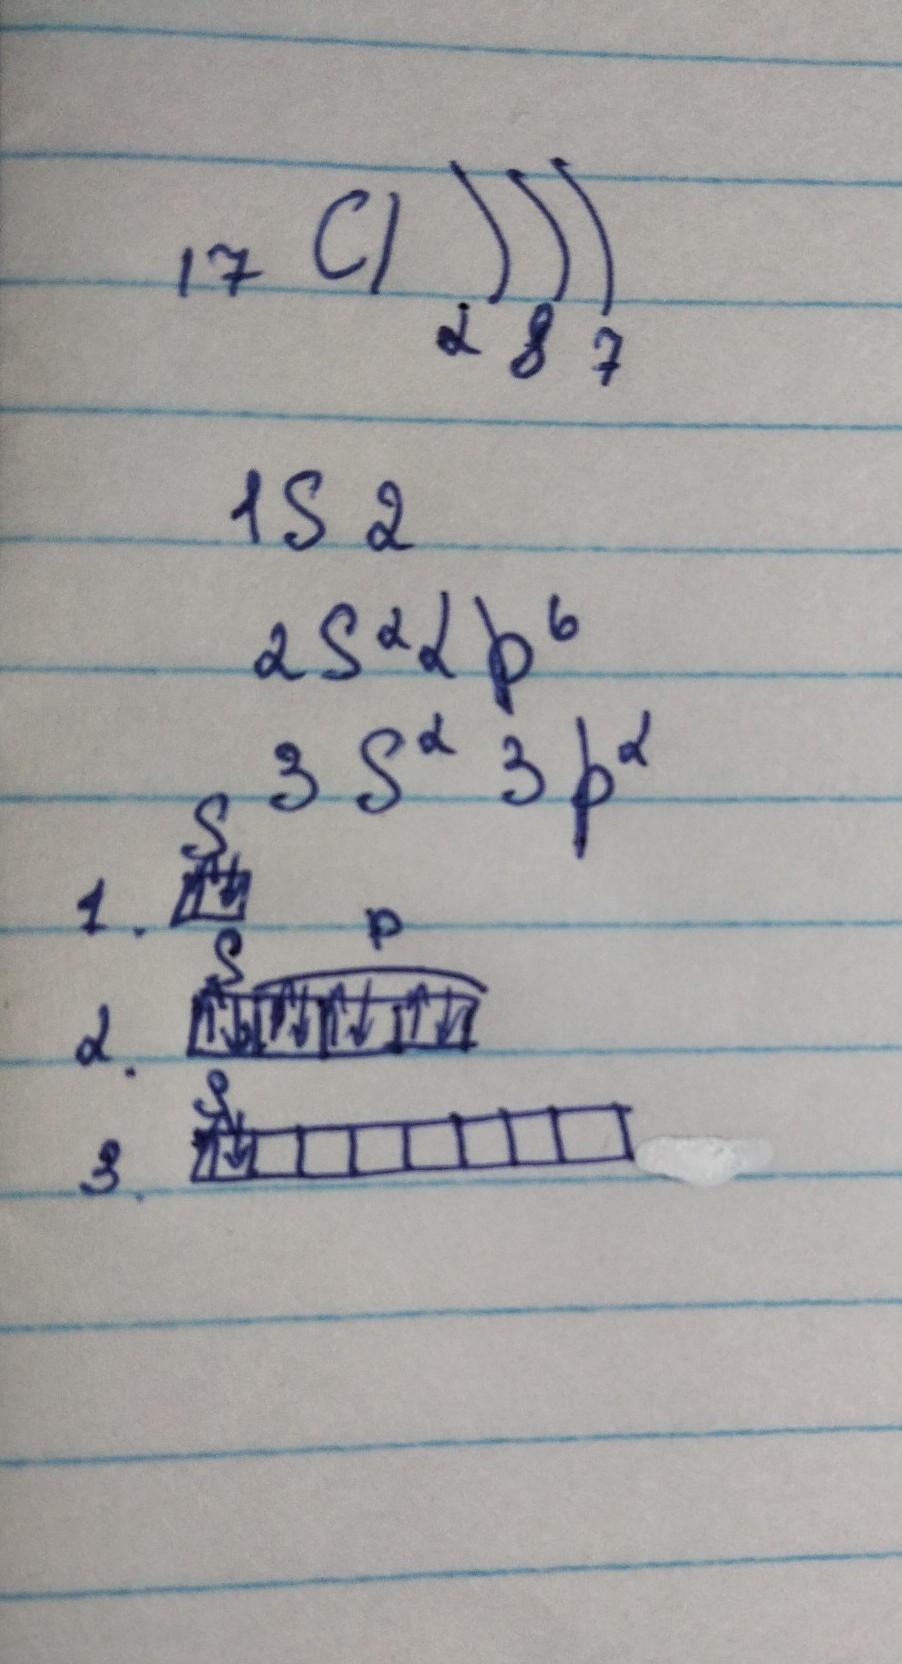 17 Cl )))
2 8 7
1S 2
2S² 2p⁶
3S² 3p²
S
1. ↑↓
S P
2. ↑↓ ↑↓ ↑↓ ↑↓
S
3. ↑↓